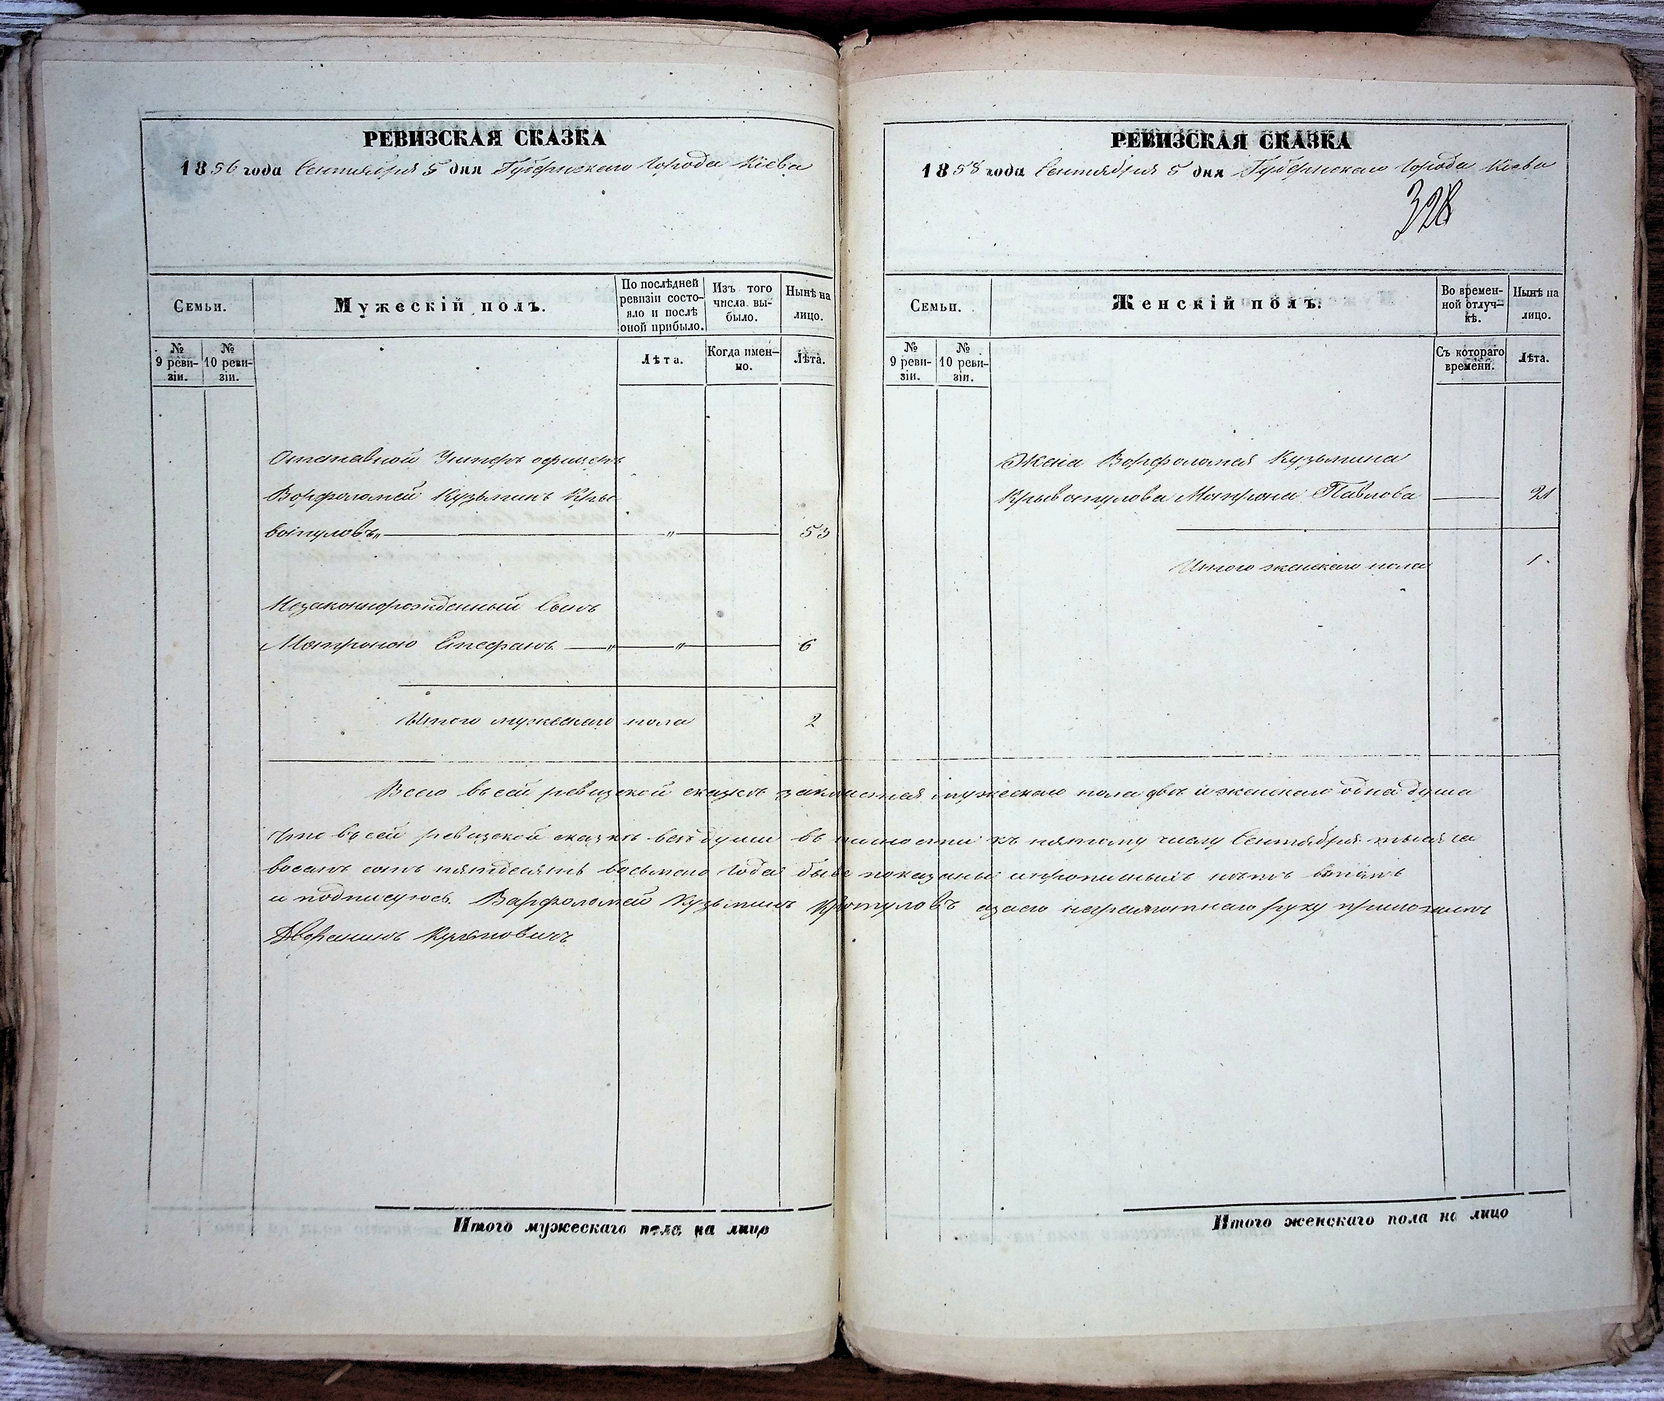 РЕВИЗСКАЯ СКАЗКА
1856 года Сентября 5 дня Губернскаго города Кіева
Семьи.
Мужескій полъ.
По послѣдней ревизіи состояло и послѣ оной прибыло.
Изъ того числа выбыло.
Нынѣ на лицо.
№ 9 ревизіи.
№ 10 ревизіи.
Лѣта.
Когда именно.
Лѣта.
Отставной Унтеръ офицеръ
Ворфоломей Кузьминъ Кры
вопуловъ „ — „ — 53
Незаконнорожденный Сынъ
Матроною Стефанъ — „ — „ — 6
Итого мужескаго пола 2
РЕВИЗСКАЯ СКАЗКА
1858 года Сентября 5 дня Губернскаго города Кіева
328
Семьи.
Женскій полъ.
Во временной отлучкѣ.
Нынѣ на лицо.
№ 9 ревизіи.
№ 10 ревизіи.
Съ котораго времени.
Лѣта.
Жена Ворфоломея Кузьмина
Крывопулова Матрона Павлова — 21
Итого женскаго пола 1.
Всего въ сей ревизской сказкѣ мужескаго пола двѣ и женскаго одна душа
Что въ сей ревизской сказкѣ всѣ души въ къ пятому числу Сентября тысяча
восемь сотъ пятдесятъ восьмого года показаны и прописныхъ нѣтъ въ томъ
и подписуюсь. Варфоломей Кузьминъ а за его неграмотнаго руку приложилъ
Дворянинъ
Итого мужескаго пола на лицо
Итого женскаго пола на лицо